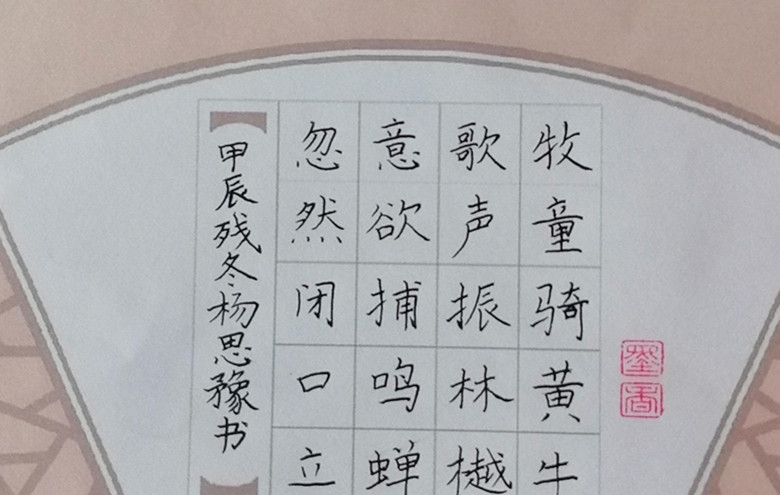 牧童骑黄牛
歌声振林樾
意欲捕鸣蝉
忽然闭口立
甲辰残冬杨思豫书
墨香